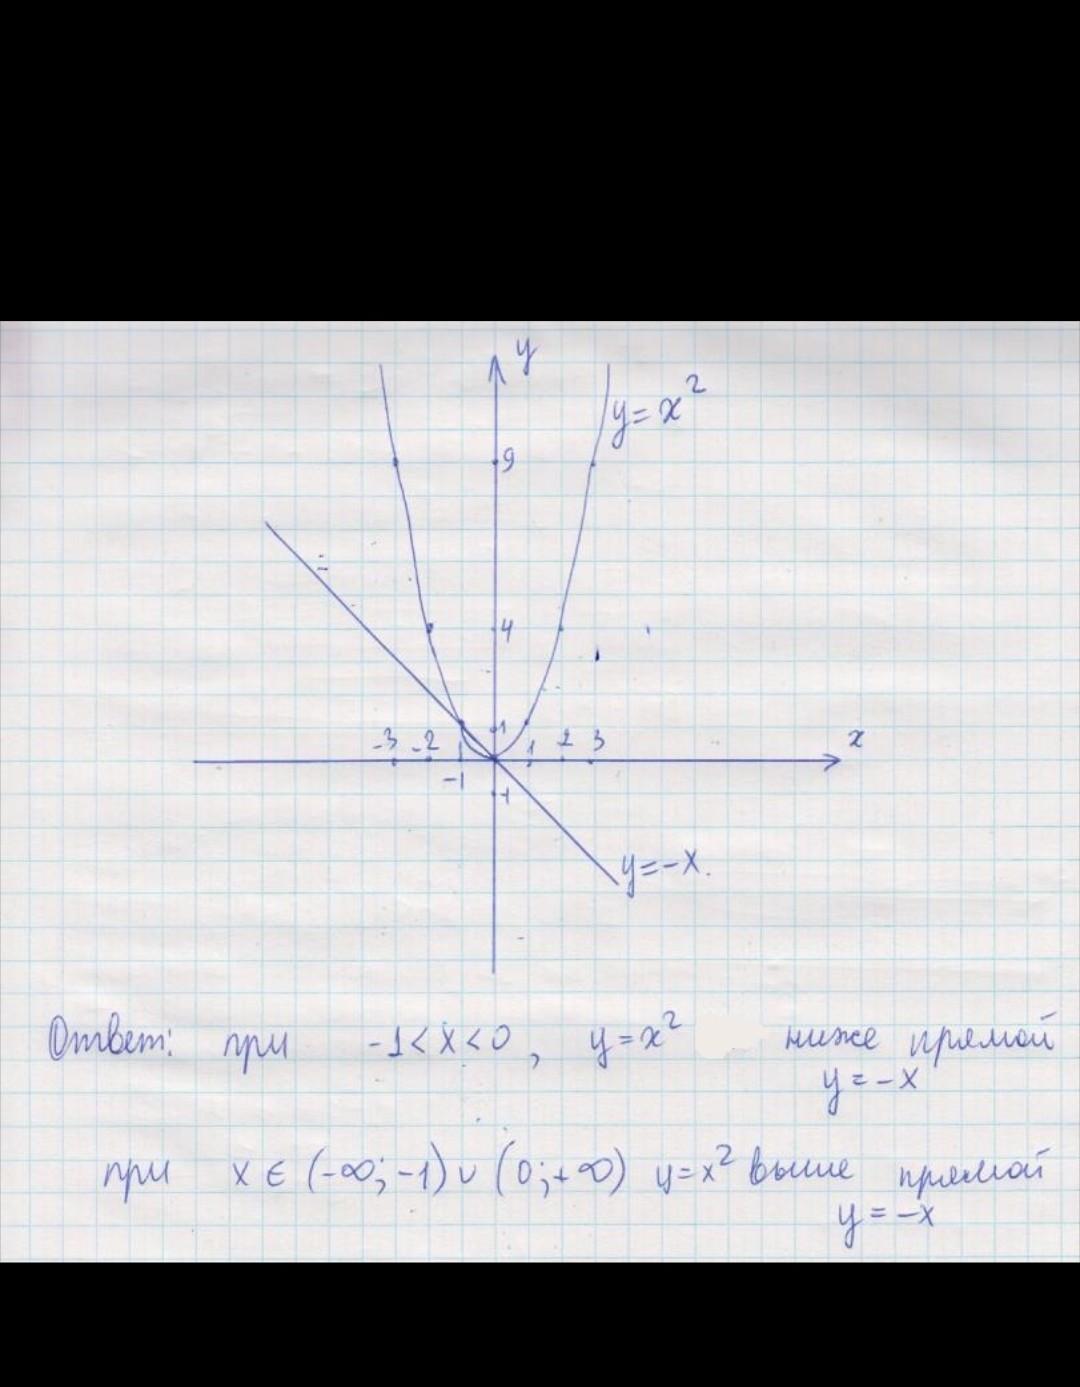 y
y = x²
9
4
1
-3 -2 1 1 2 3 x
-1
-1
y = -x.
Ответ: при -1 < x < 0, y = x² ниже прямой
y = -x
при x ∈ (-∞; -1) ∪ (0; +∞) y = x² выше прямой
y = -x